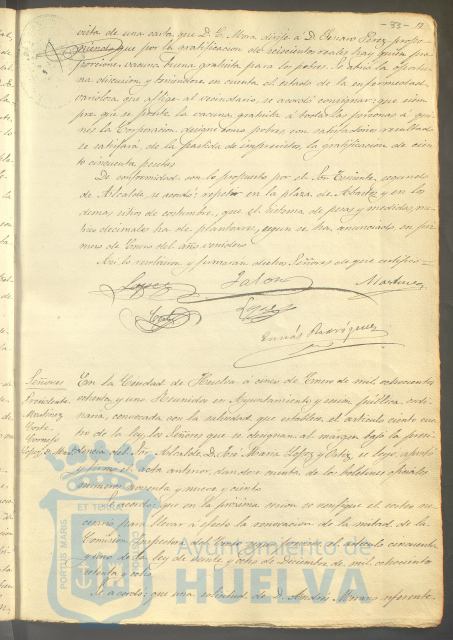 - 33 - 12
vista de una carta que D. G. Mora dirijió á D. Genaro Perez propo
niendo que por la gratificacion de seiscientos reales hay quien pro
porcione vacuna buena gratuita para los pobres. Se abrió la oportu
na discusion, y teniendose en cuenta el estado de la enfermedad
variolosa que aflije al vecindario, se acordó consignar: que siem
pre que se preste la vacuna gratuita á todas las personas á quie
nes la Corporacion designe como pobres, con satisfactorio resultado
se satisfará de la partida de imprevistos, la gratificacion de cien
to cincuenta pesetas.
De conformidad con lo propuesto por el Sor. Teniente segundo
de Alcalde, se acordó: repetir en la plaza de Abastos y en los
demas sitios de costumbre, que el sistema de pesas y medidas, me
trico decimales ha de plantearse, segun se ha anunciado en pri
mero de Enero del año venidero.
Así lo resolvieron y firmaron dichos Señores de que certifico
Lopez Jalon Martinez
Lopez
Tomás Rodriguez
Señores
Presidente
Martinez
Lopez
En la Ciudad de Huelva á cinco de Enero de mil ochocientos
ochenta y uno. Reunidos en Ayuntamiento y sesion publica ordi
naria, convocada con la solemnidad que establece el articulo ciento cua
tro de la ley, los Señores que se designan al margen bajo la presi
dencia del Sor. Alcalde D. José Maria Lopez y Ortiz, se leyó, aprobó
y firmó el acta anterior, dandose cuenta de los boletines oficiales
numeros noventa y nueve y ciento.
Se acordó: que en la próxima sesion se verifique el sorteo ne
cesario para llevar á efecto la renovacion de la mitad de la
Comision inspectora del Censo segun previene el articulo cincuenta
y uno de la ley de veinte y ocho de Diciembre de mil ochocientos
setenta y ocho.
Se acordó: que una solicitud de D. Andrés Moreno referente
ET TERRAE
PORTUS MARIS
CUSTODIA
Ayuntamiento de
HUELVA